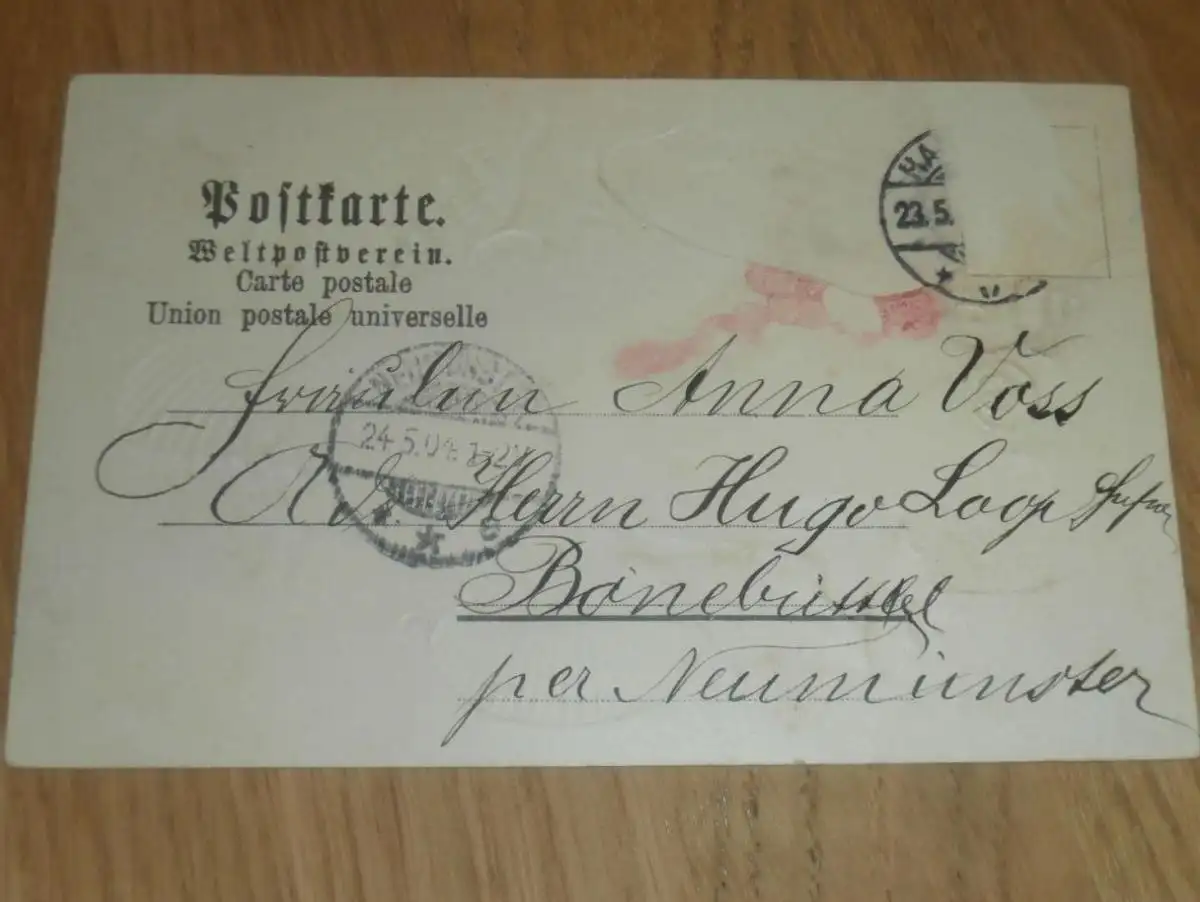 Postkarte.
Weltpostverein.
Carte postale
Union postale universelle
HA
23.5.
Fräulein Anna Voss
24.5.04. 1-2N
Ad. Herrn Hugo Loop Hufner
Bönebüttel
per Neumünster